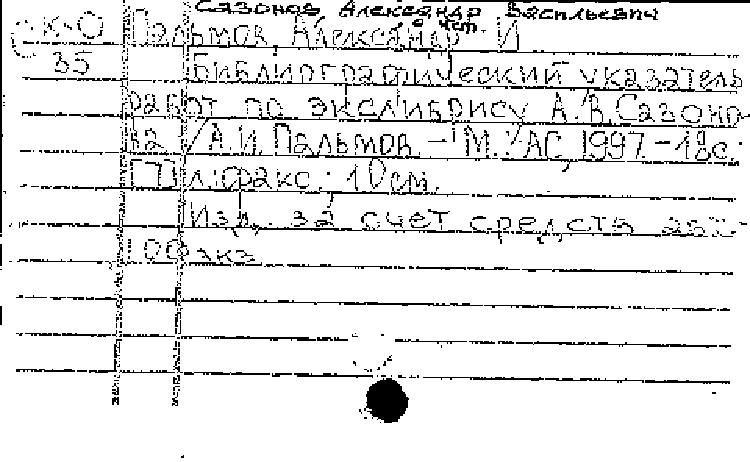 Сазонов Александр Васильевич
К-О Пальмов, Александр И
35 Библиографический указатель
работ по экслибрису А.В.Сазоно-
ва /А.И. Пальмов. - М.: АС, 1997. - 18с.:
[7]л.факс.; 10см.
Изд. за счет средств
100экз